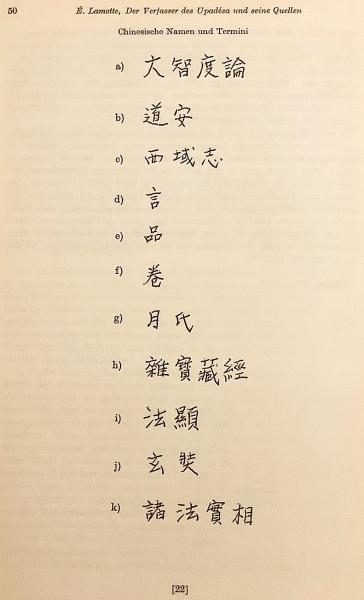 50 É. Lamotte, Der Verfasser des Upadeśa und seine Quellen
Chinesische Namen und Termini
a) 大智度論
b) 道安
c) 西域志
d) 言
e) 品
f) 卷
g) 月氏
h) 雜寶藏經
i) 法顯
j) 玄奘
k) 諸法實相
[22]